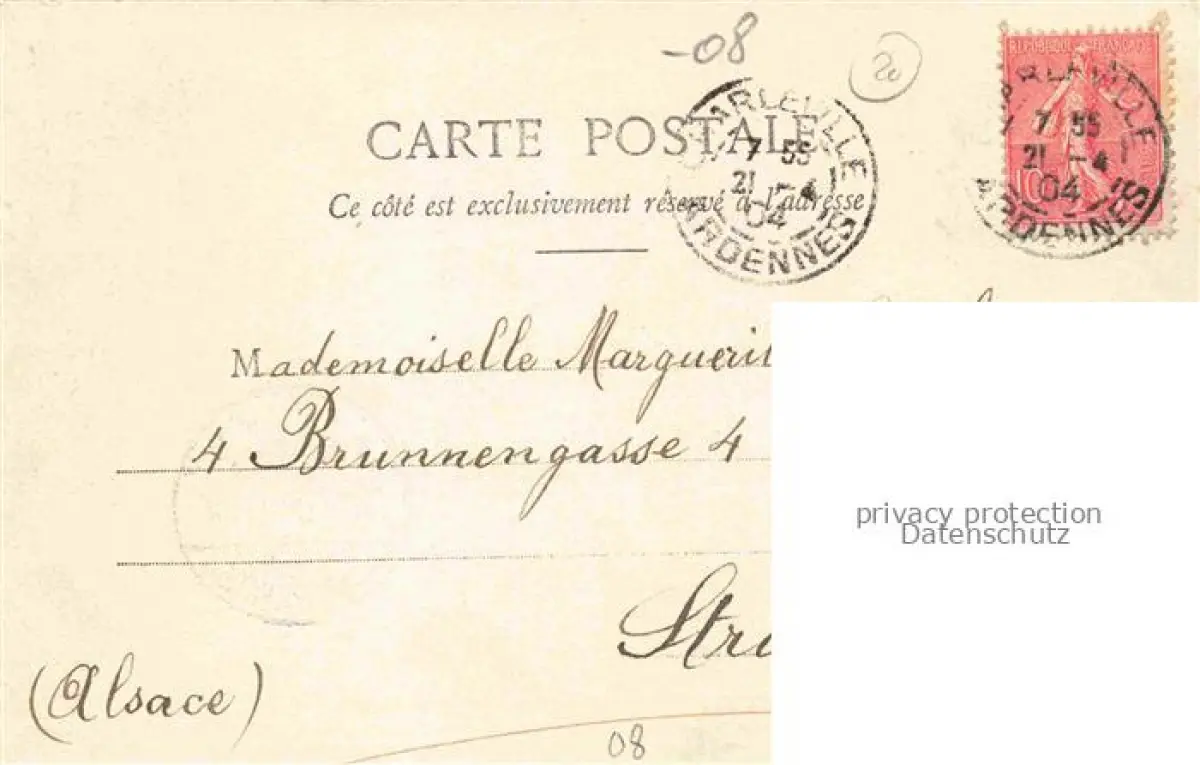 -08
20
RÉPUBLIQUE FRANÇAISE
10
CHARLEVILLE
7 55
21 -4
04
ARDENNES
CHARLEVILLE
7 55
21 -4
04
ARDENNES
CARTE POSTALE
Ce côté est exclusivement réservé à l'adresse
Mademoiselle Marguerit
4 Brunnengasse 4
privacy protection
Datenschutz
Stra
(Alsace)
08